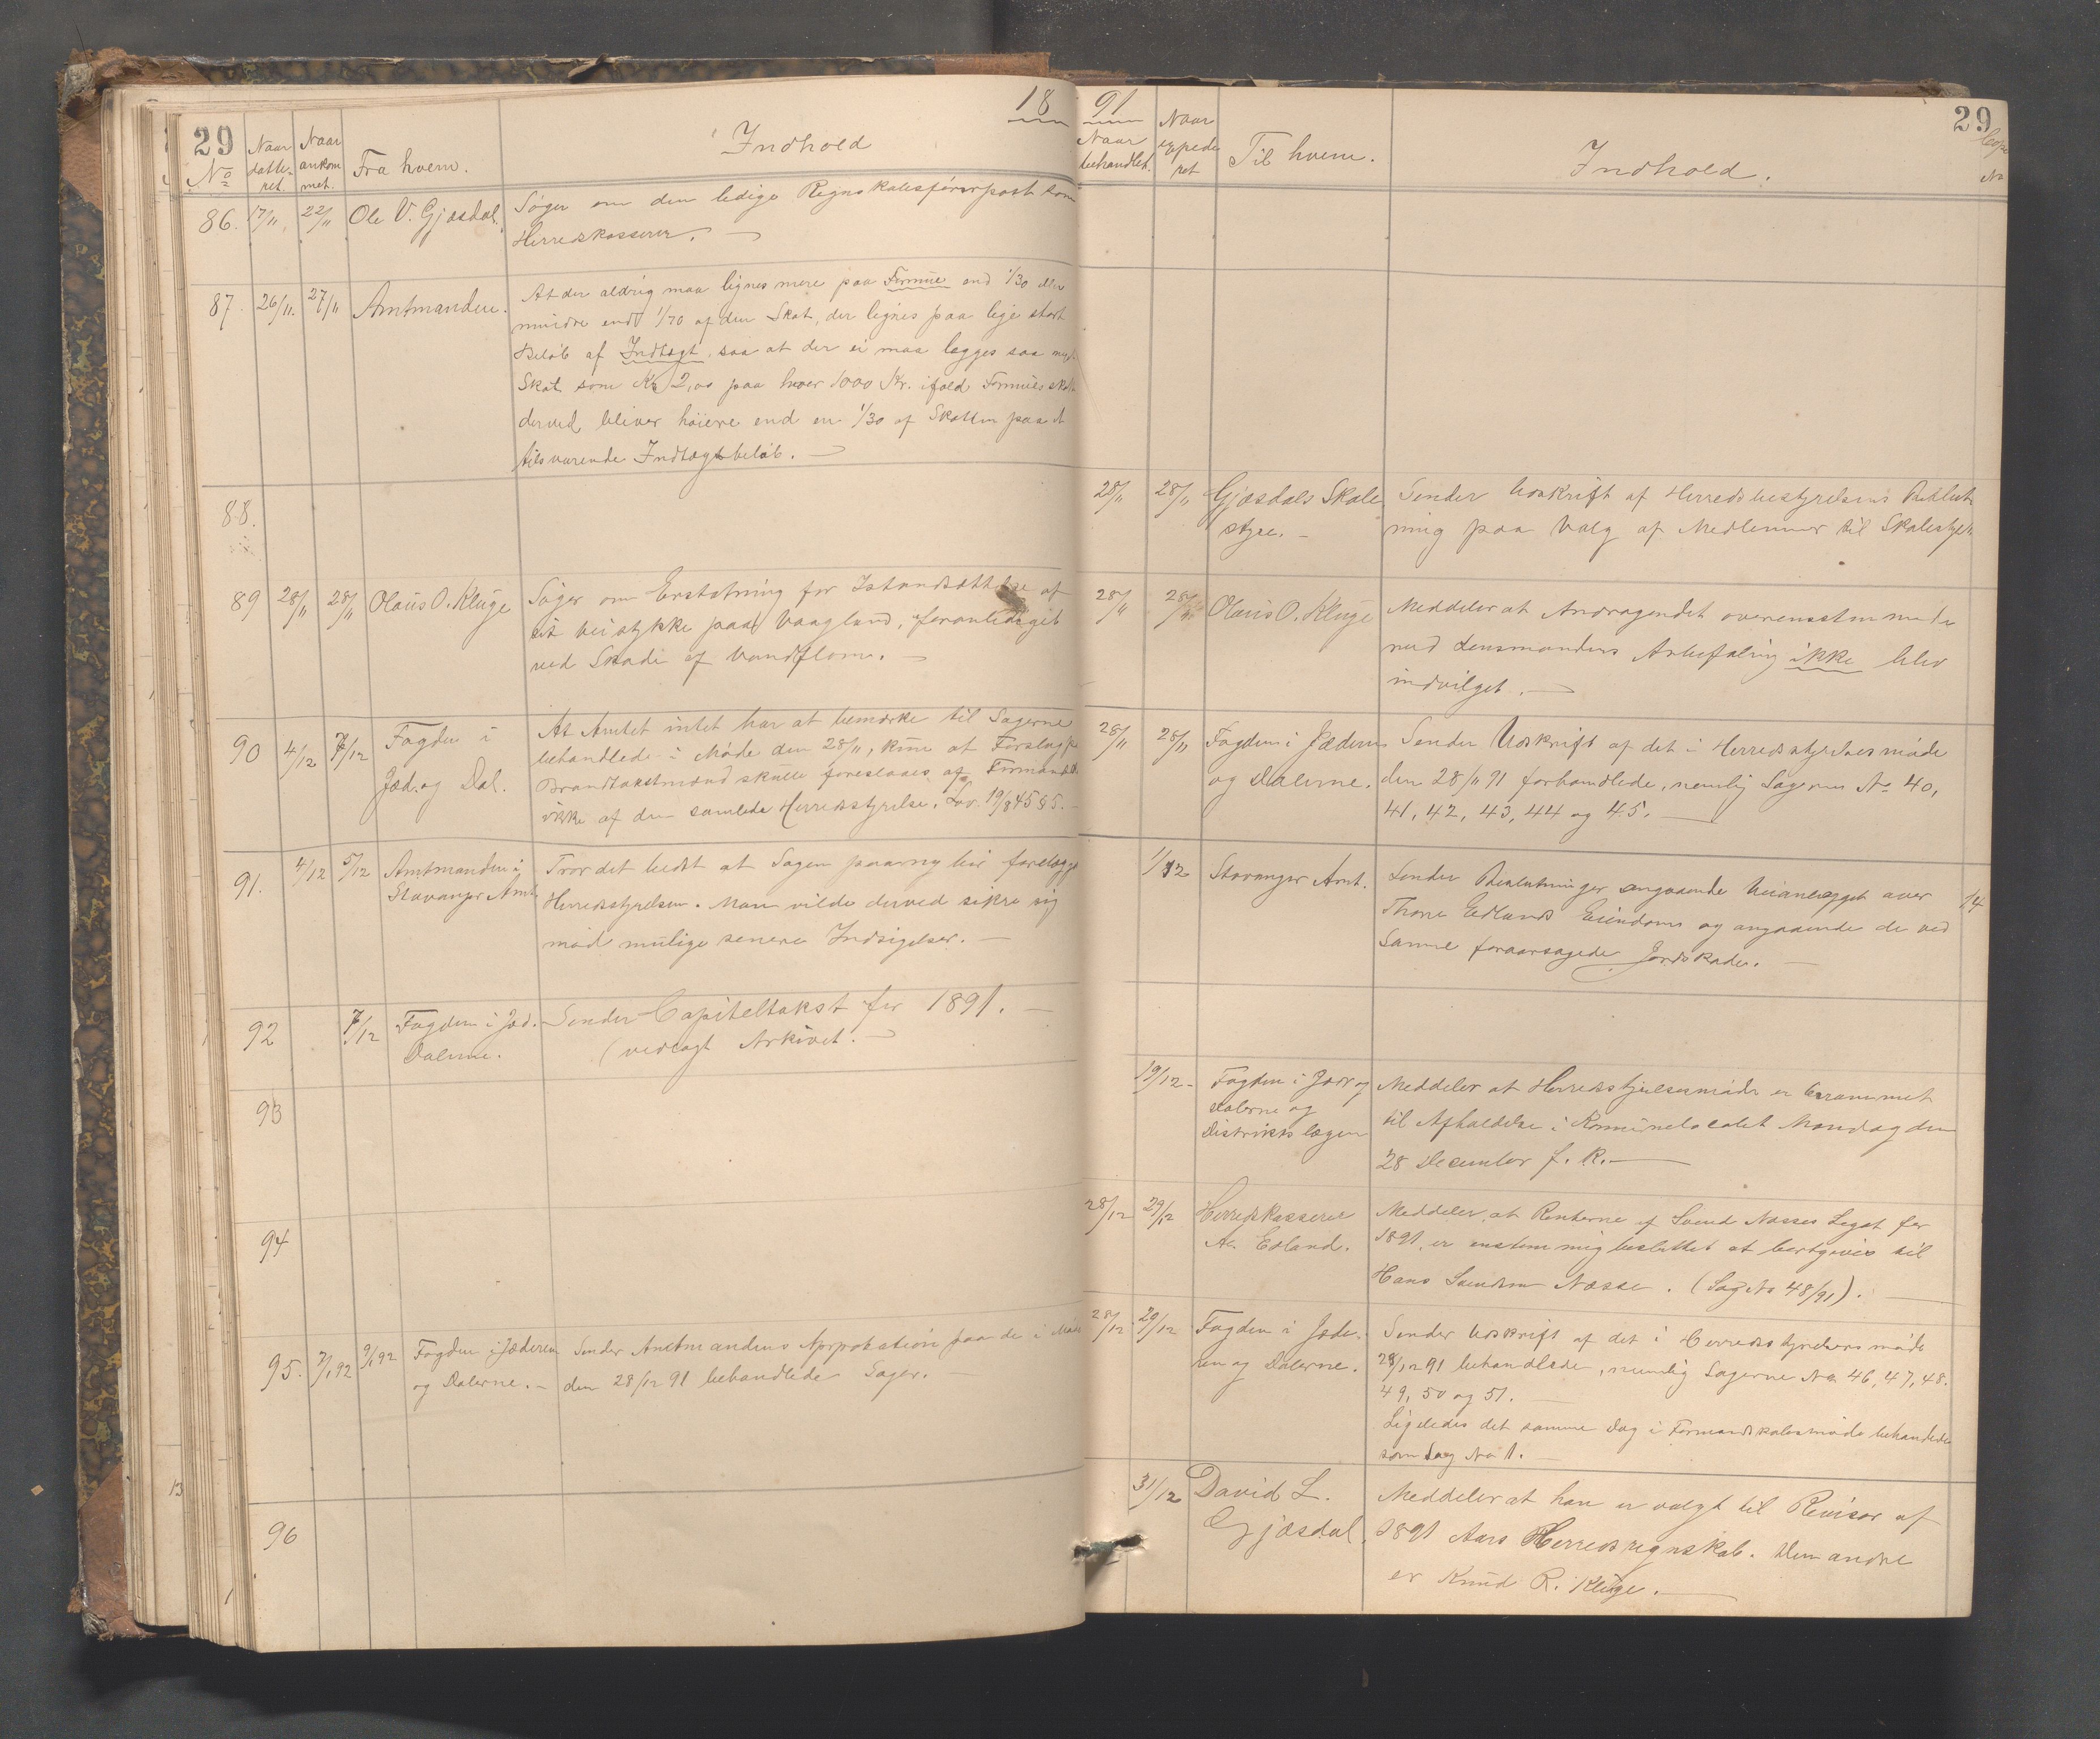 18 91
29
No
Naar datteret.
Naar ankommet.
Fra hvem.
Indhold
86. 17/11. 22/11 Ole V. Gjæsdal. Søger om den ledige Regnskabsførerpost som
Herredskasserer. —
87. 26/11. 27/11 Amtmanden. At der aldrig maa lignes mere paa Formue end 1/30 eller
mindre end 1/70 af den Skat, der lignes paa lige stort
Beløb af Indtægt, saa at der ei maa lægges saa megen
Skat som Kr 2,00 paa hver 1000 Kr. ifald Formuesskatten
derved bliver høiere end en 1/30 af Skatten paa et
tilsvarende Indtægtsbeløb. —
88.
89 28/11 28/11 Olaus O. Kluge Søger om Erstatning for Istandsættelse af
sit Veistykke paa Vaagland, foranlediget
ved Skade af Vandflom. —
90 4/12 7/12 Fogden i
Jæd. og Dal.
At Amtet intet har at bemærke til Sagerne
behandlede i Møde den 28/11, kun at Forslag paa
Brandtakstmænd skulle foreslaaes af Formandsk.
ikke af den samlede Herredsstyrelse. Lov. 19/8 45 § 5. —
91. 4/12 5/12 Amtmanden i
Stavanger Amt.
Tror det bedst at Sagen paany bør forelægges
Herredsstyrelsen. Man vilde derved sikre sig
mod mulige senere Indsigelser. —
92 7/12 Fogden i Jæd.
Dalerne.
Sender Capiteltakst for 1891. —
(vedlagt Arkivet. —
93
94
95. 7/1 92 9/1 92 Fogden i Jæderen
og Dalerne. —
Sender Amtmandens Approbation paa de i Møde
den 28/12 91 behandlede Sager. —
96
29
Naar behandlet.
Naar expederet
Til hvem.
Indhold.
Kopi
No
28/11 28/11 Gjæsdals Skole
styre. —
Sender Udskrift af Herredsbestyrelsens Beslut
ning paa Valg af Medlemmer til Skolestyret
28/11 28/11 Olaus O. Kluge Meddeler at Andragendet overensstemmende
med Lensmandens Anbefaling ikke blev
indvilget. —
28/11 28/11 Fogden i Jæderen
og Dalerne.
Sender Udskrift af det i Herredsstyrelsesmøde
den 28/11 91 forhandlede, nemlig Sagerne No 40,
41, 42, 43, 44 og 45. —
1/12 Stavanger Amt. Sender Beslutninger angaaende Veianlægget over
Thore Edlands Eiendom og angaaende de ved
Samme foraarsagede Jordskader. —
14
19/12 - Fogden i Jæd og
Dalerne og
Distriktslægen
Meddeler at Herredsstyrelsesmøde er berammet
til Afholdelse i Kommunelocalet Mandag den
28 December f. K. —
28/12 29/12 Herredskasserer
A. Edland.
Meddeler, at Renterne af Svend Næsses Legat for
1891, er enstemmig besluttet at bortgives til
Hans Svendsen Næsse. (Sag No 48/91). —
28/12 29/12 Fogden i Jæde-
ren og Dalerne.
Sender Udskrift af det i Herredsstyrelsesmøde
28/12 91 behandlede, nemlig Sagerne No 46, 47, 48.
49, 50 og 51. —
Ligeledes det samme Dag i Formandskabsmøde behandlede
som Sag No 1. —
31/12 David L.
Gjæsdal.
Meddeler at han er valgt til Revisor af
1891 Aars Herredsregnskab. Den andre
er Knud R. Kluge. —